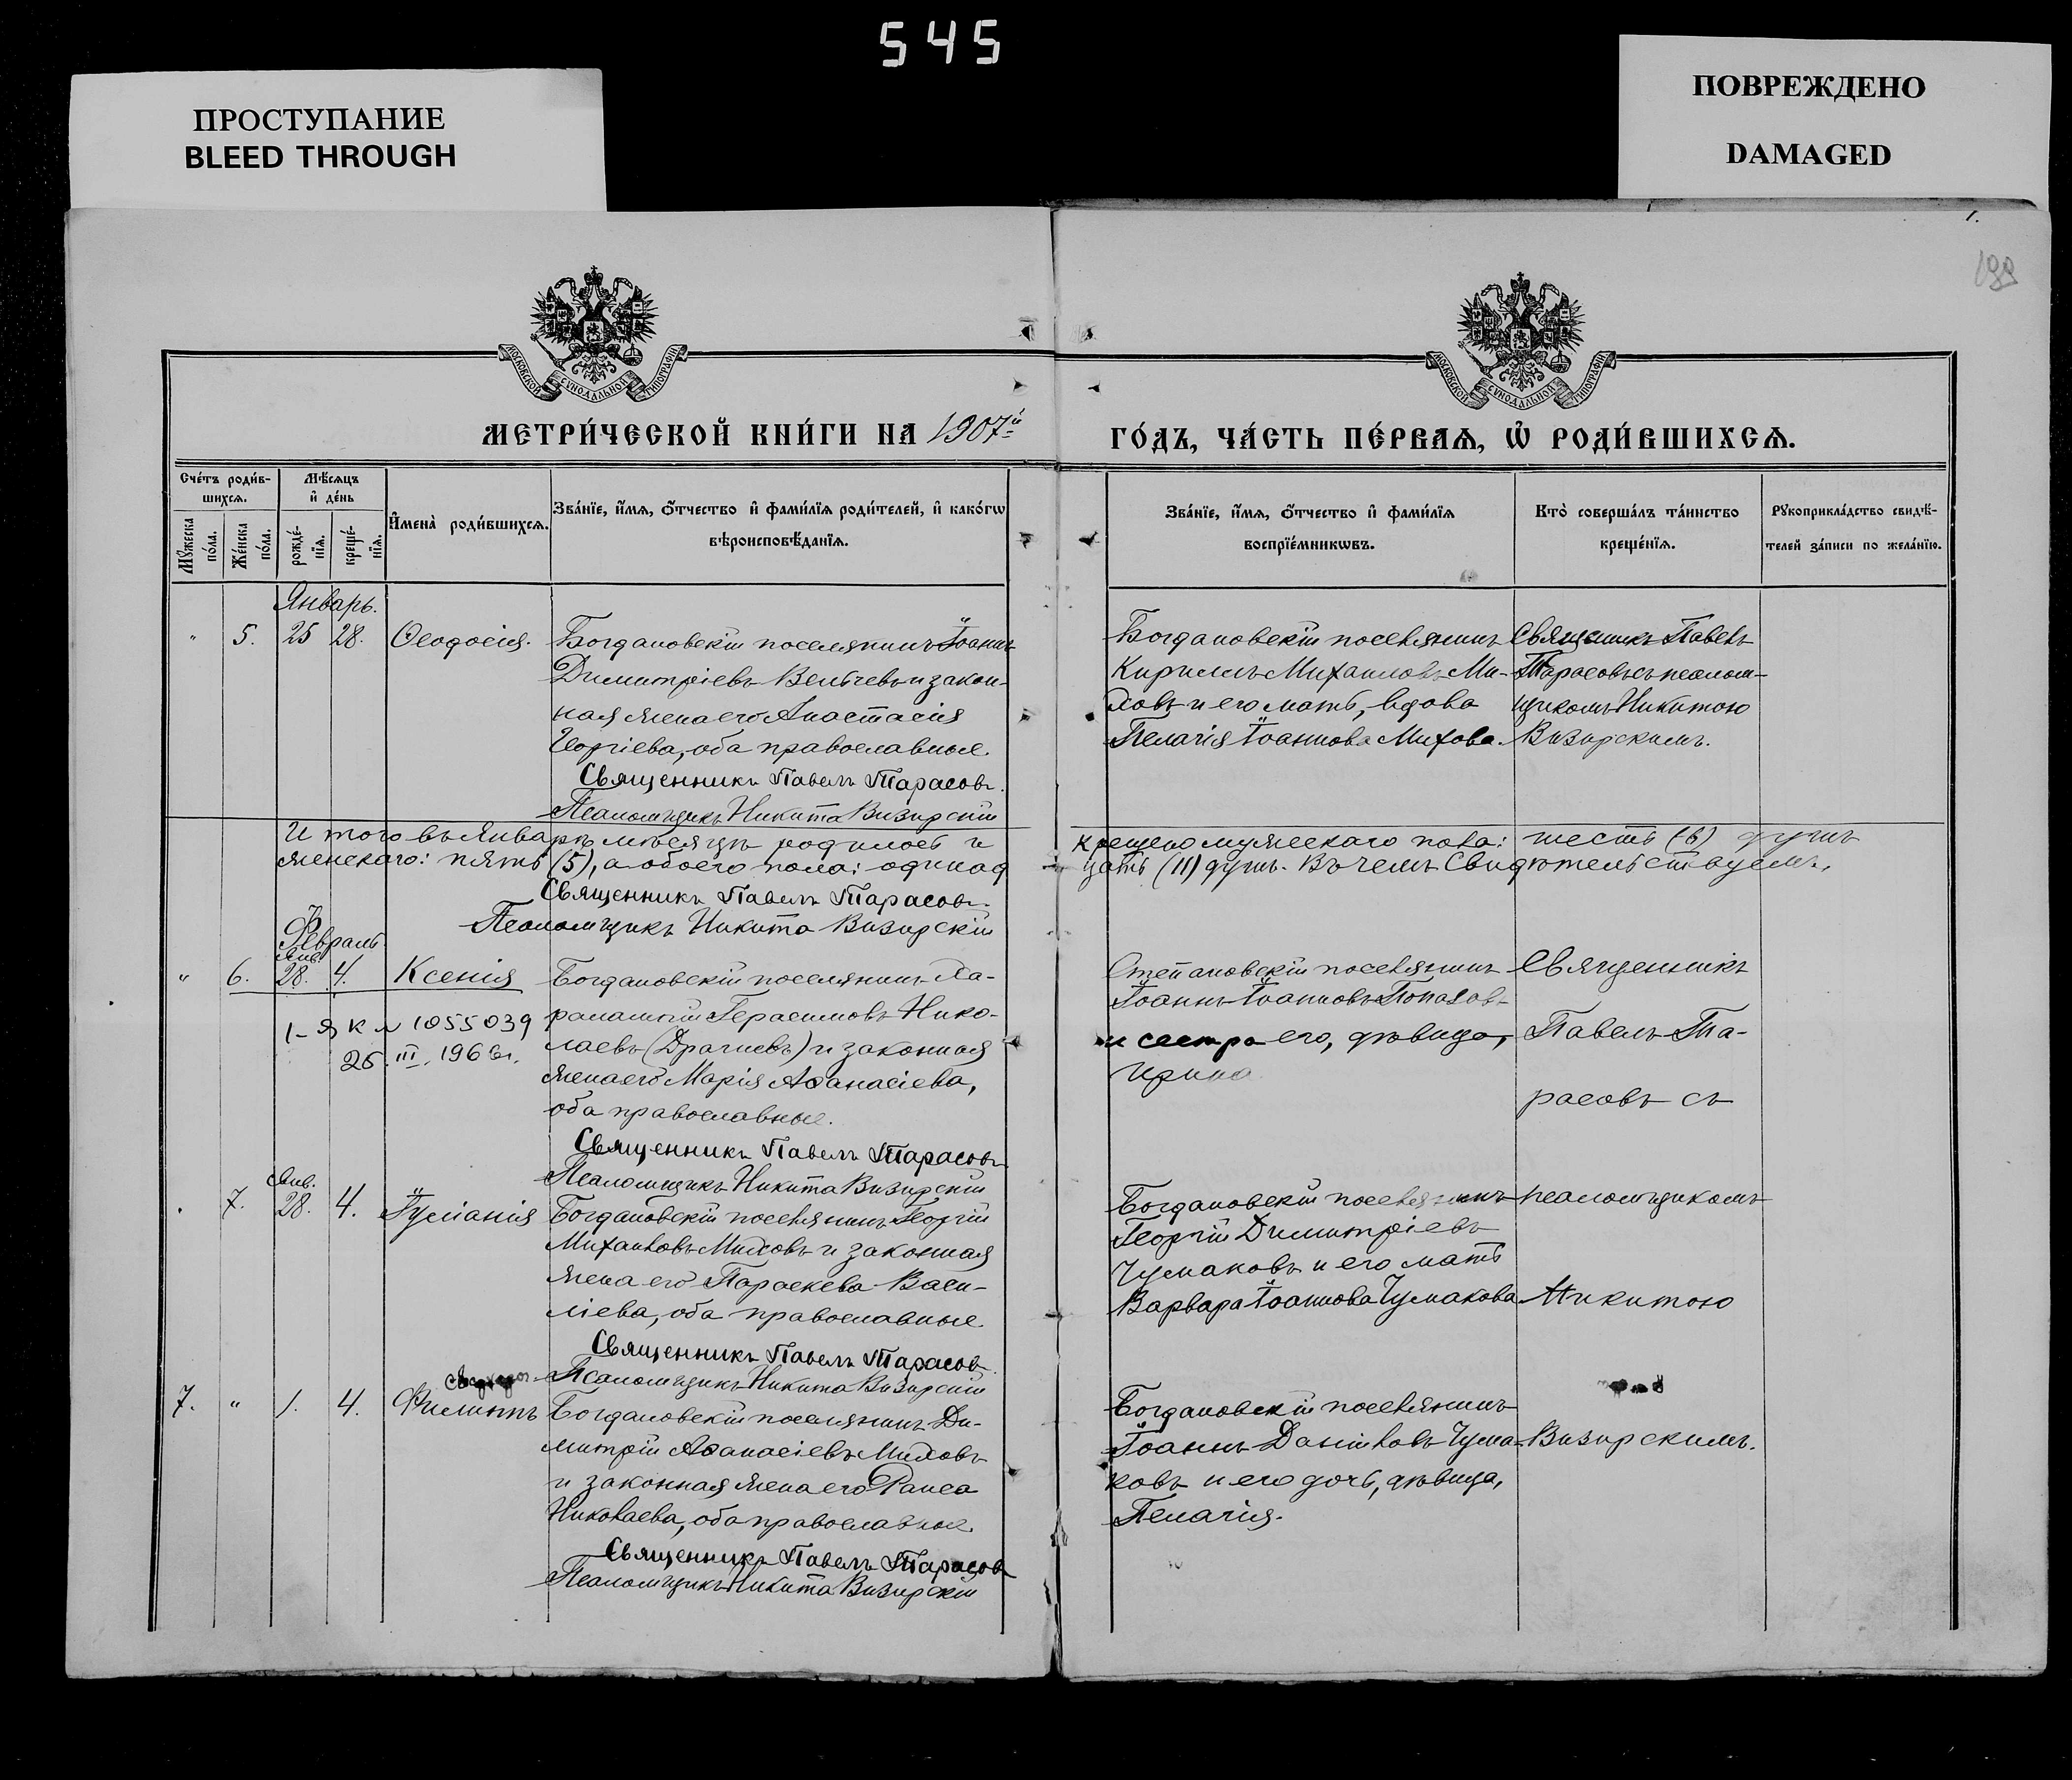 545
ПРОСТУПАНИЕ
BLEED THROUGH
ПОВРЕЖДЕНО
DAMAGED
1.
199
МОСКОВСКОЙ СѴНОДАЛЬНОЙ ТИПОГРАФІИ
МОСКОВСКОЙ СѴНОДАЛЬНОЙ ТИПОГРАФІИ
МЕТРИ́ЧЕСКОЙ КНИ́ГИ НА 1907й
ГО́ДЪ, ЧА́СТЬ ПЕ́РВАѦ, Ѽ РОДИ́ВШИХСѦ.
Сче́тъ роди́в-
шихсѧ.
Мꙋ́жеска
по́ла.
Же́нска
по́ла.
Мѣ́сѧцъ
и҆ де́нь
рожде́-
нїѧ.
креще́-
нїѧ.
И҆мена̀ роди́вшихсѧ.
Зва́нїе, и҆́мѧ, ѻ҆́тчество и҆ фами́лїѧ роди́телей, и҆ како́гѡ
вѣроисповѣ́данїѧ.
Зва́нїе, и҆́мѧ, ѻ҆́тчество и҆ фами́лїѧ
воспрїе́мникѡвъ.
Кто̀ соверша́лъ та́инство
креще́нїѧ.
Рꙋкоприкла́дство свидѣ́-
телей за́писи по жела́нїю.
Январь.
" 5. 25 28. Ѳеодосія. Богдановскій поселянинъ Іоаннъ
Димитріевъ Велчевъ и закон-
ная жена его Анастасія
Георгіева, оба православные.
Священникъ Павелъ Тарасовъ.
Псаломщикъ Никита Визирскій
Богдановскій поселянинъ
Кириллъ Михаиловъ Ми-
ховъ и его мать, вдова
Пелагія Іоаннова Михова.
Священникъ Павелъ
Тарасовъ съ псалом-
щикомъ Никитою
Визирскимъ.
И того въ Январѣ мѣсяцѣ родилось и крещено мужескаго пола: шесть (6) душъ
женскаго: пять (5), а обоего пола: одинад цать (11) душъ. Въ чемъ Свидѣтельствуемъ.
Священникъ Павелъ Тарасовъ.
Псаломщикъ Никита Визирскій
Февраль.
Янв.
" 6. 28. 4. Ксенія Богдановскій поселянинъ Ха-
ралампій Герасимовъ Нико-
лаевъ (Драгиевъ) и законная
жена его Марія Аѳанасіева,
оба православные.
Священникъ Павелъ Тарасовъ
Псаломщикъ Никита Визирскій
I-ЯК № 1055039
26.III.1966г.
Степановскій поселянинъ
Іоаннъ Іоанновъ
и сестра его, дѣвица,
Ирина
Священникъ
Павелъ Та-
расовъ съ
Янв.
7. 28. 4. Іуліанія Богдановскій поселянинъ Георгій
Михаиловъ Миховъ и законная
жена его Параскева Васи-
ліева, оба православные.
Священникъ Павелъ Тарасовъ
Псаломщикъ Никита Визирскій
Богдановскій поселянинъ
Георгій Димитріевъ
Чумаковъ и его мать
Варвара Іоаннова Чумакова
псаломщикомъ
Никитою
7. " 1. 4. Филиппъ Богдановскій поселянинъ Ди-
митрій Аѳанасіевъ Миховъ
и законная жена его Раиса
Николаева, оба православные.
Священникъ Павелъ Тарасовъ
Псаломщикъ Никита Визирскій
Богдановскій поселянинъ
Іоаннъ Даніиловъ Чума-
ковъ и его дочь, дѣвица,
Пелагія.
Визирскимъ.